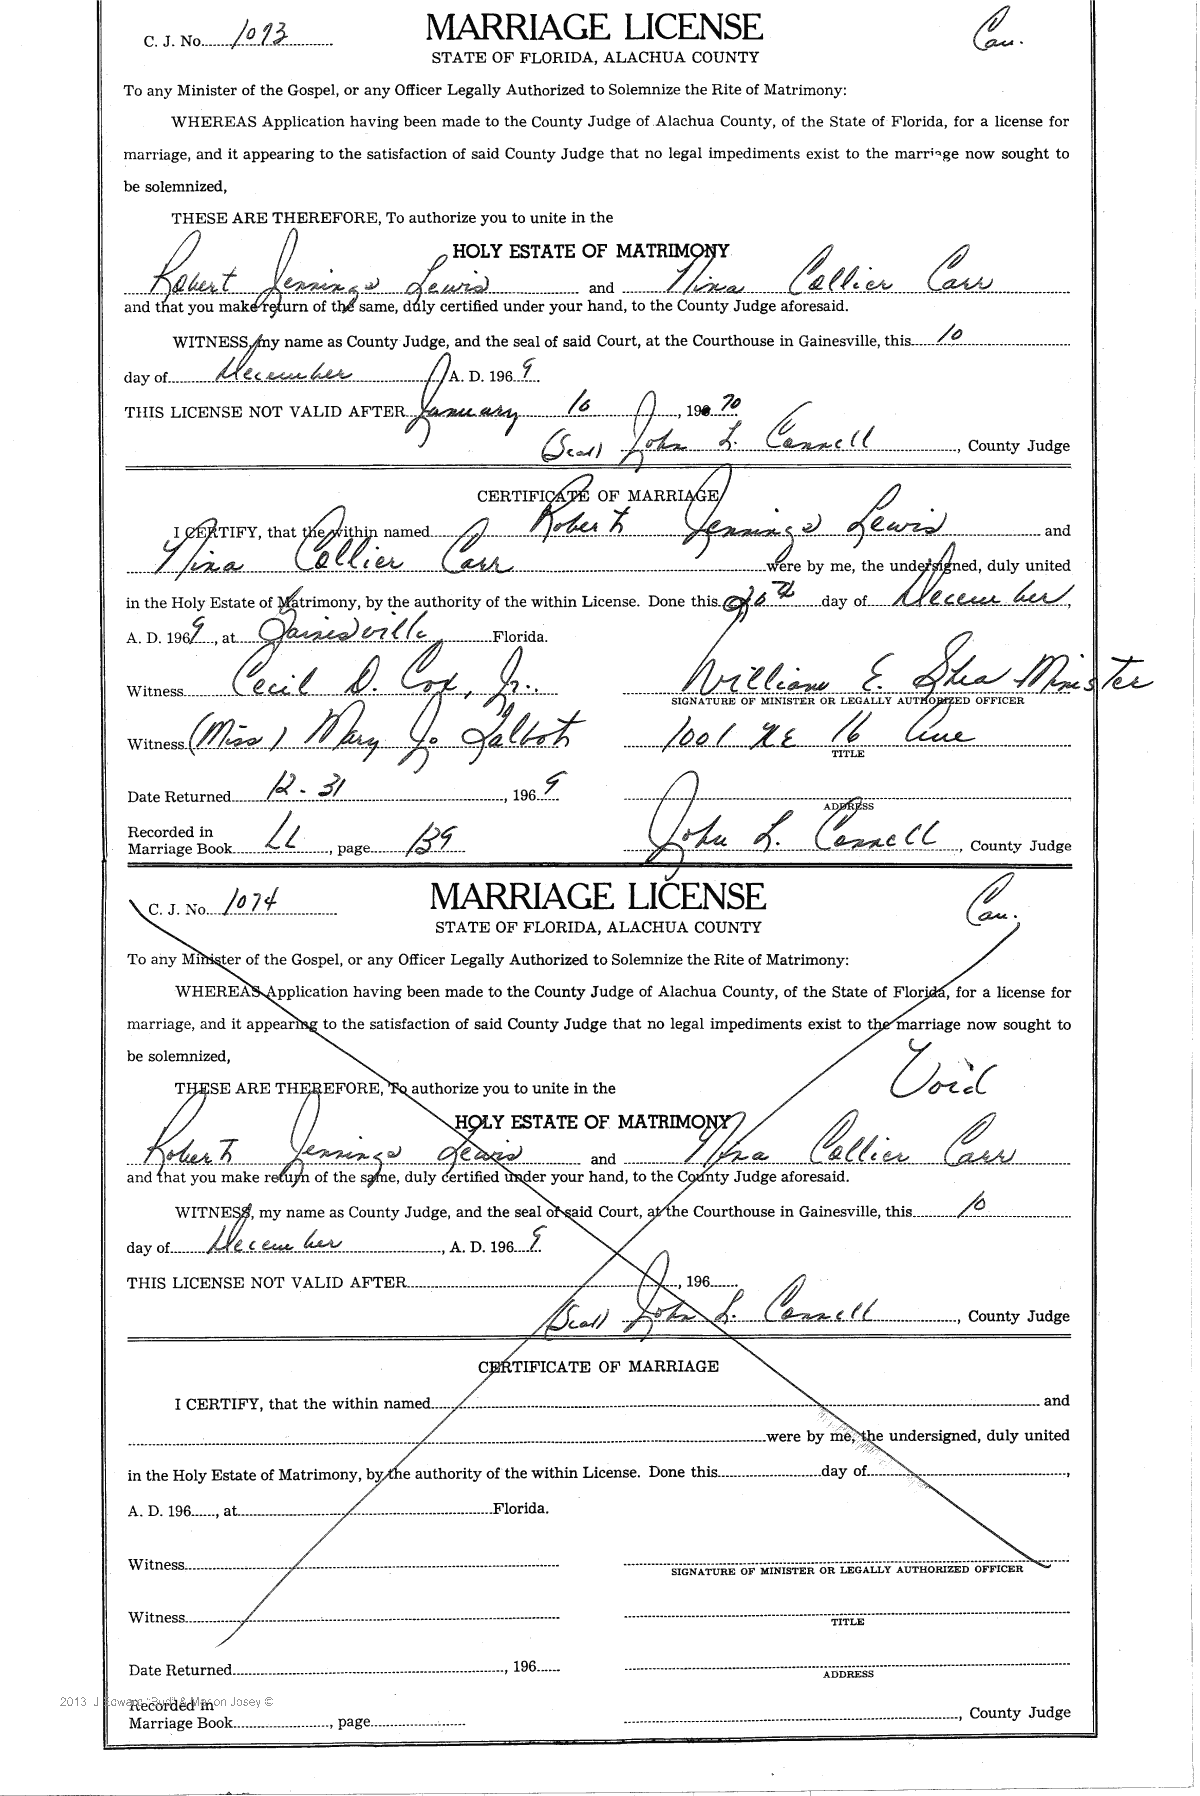 C. J. No. 1073
MARRIAGE LICENSE
Cau.
STATE OF FLORIDA, ALACHUA COUNTY
To any Minister of the Gospel, or any Officer Legally Authorized to Solemnize the Rite of Matrimony:
WHEREAS Application having been made to the County Judge of Alachua County, of the State of Florida, for a license for
marriage, and it appearing to the satisfaction of said County Judge that no legal impediments exist to the marriage now sought to
be solemnized,
THESE ARE THEREFORE, To authorize you to unite in the
HOLY ESTATE OF MATRIMONY
Robert Jennings Lewis and Nina Collier Carr
and that you make return of the same, duly certified under your hand, to the County Judge aforesaid.
WITNESS, my name as County Judge, and the seal of said Court, at the Courthouse in Gainesville, this 10
day of December A. D. 1969
THIS LICENSE NOT VALID AFTER January 10, 1970
(Seal) John L. Connell, County Judge
CERTIFICATE OF MARRIAGE
I CERTIFY, that the within named Robert Jennings Lewis and
Nina Collier Carr were by me, the undersigned, duly united
in the Holy Estate of Matrimony, by the authority of the within License. Done this 20th day of December,
A. D. 1969, at Gainesville Florida.
Witness Cecil D. Cox, Jr. William E. Shea Minister
SIGNATURE OF MINISTER OR LEGALLY AUTHORIZED OFFICER
Witness (Miss) Mary Jo Talbot 1001 NE 16 Ave
TITLE
Date Returned 12-31, 1969
ADDRESS
Recorded in
Marriage Book LL, page 139 John L. Connell, County Judge
C. J. No. 1074
MARRIAGE LICENSE
Cau.
STATE OF FLORIDA, ALACHUA COUNTY
To any Minister of the Gospel, or any Officer Legally Authorized to Solemnize the Rite of Matrimony:
WHEREAS Application having been made to the County Judge of Alachua County, of the State of Florida, for a license for
marriage, and it appearing to the satisfaction of said County Judge that no legal impediments exist to the marriage now sought to
be solemnized,
Void
THESE ARE THEREFORE, To authorize you to unite in the
HOLY ESTATE OF MATRIMONY
Robert Jennings Lewis and Nina Collier Carr
and that you make return of the same, duly certified under your hand, to the County Judge aforesaid.
WITNESS, my name as County Judge, and the seal of said Court, at the Courthouse in Gainesville, this 10
day of December, A. D. 1969
THIS LICENSE NOT VALID AFTER, 196
(Seal) John L. Connell, County Judge
CERTIFICATE OF MARRIAGE
I CERTIFY, that the within named and
were by me, the undersigned, duly united
in the Holy Estate of Matrimony, by the authority of the within License. Done this day of,
A. D. 196, at Florida.
Witness
SIGNATURE OF MINISTER OR LEGALLY AUTHORIZED OFFICER
Witness
TITLE
Date Returned, 196
ADDRESS
2013 J Edward "Bud" & Mason Josey ©
Recorded in
Marriage Book, page, County Judge